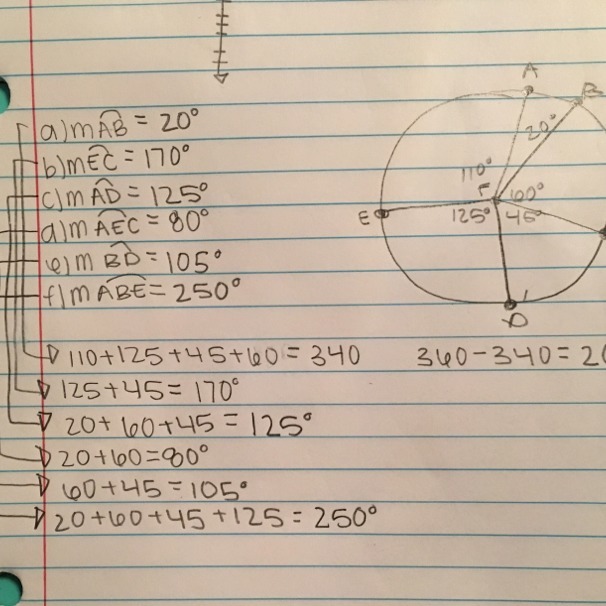 a) m AB = 20°
b) m EC = 170°
c) m AD = 125°
d) m AEC = 80°
e) m BD = 105°
f) m ABE = 250°
A
B
20°
110°
F
60°
E
125°
45°
D
110+125+45+60 = 340
360-340=20
125+45=170°
20+60+45=125°
20+60=80°
60+45=105°
20+60+45+125=250°